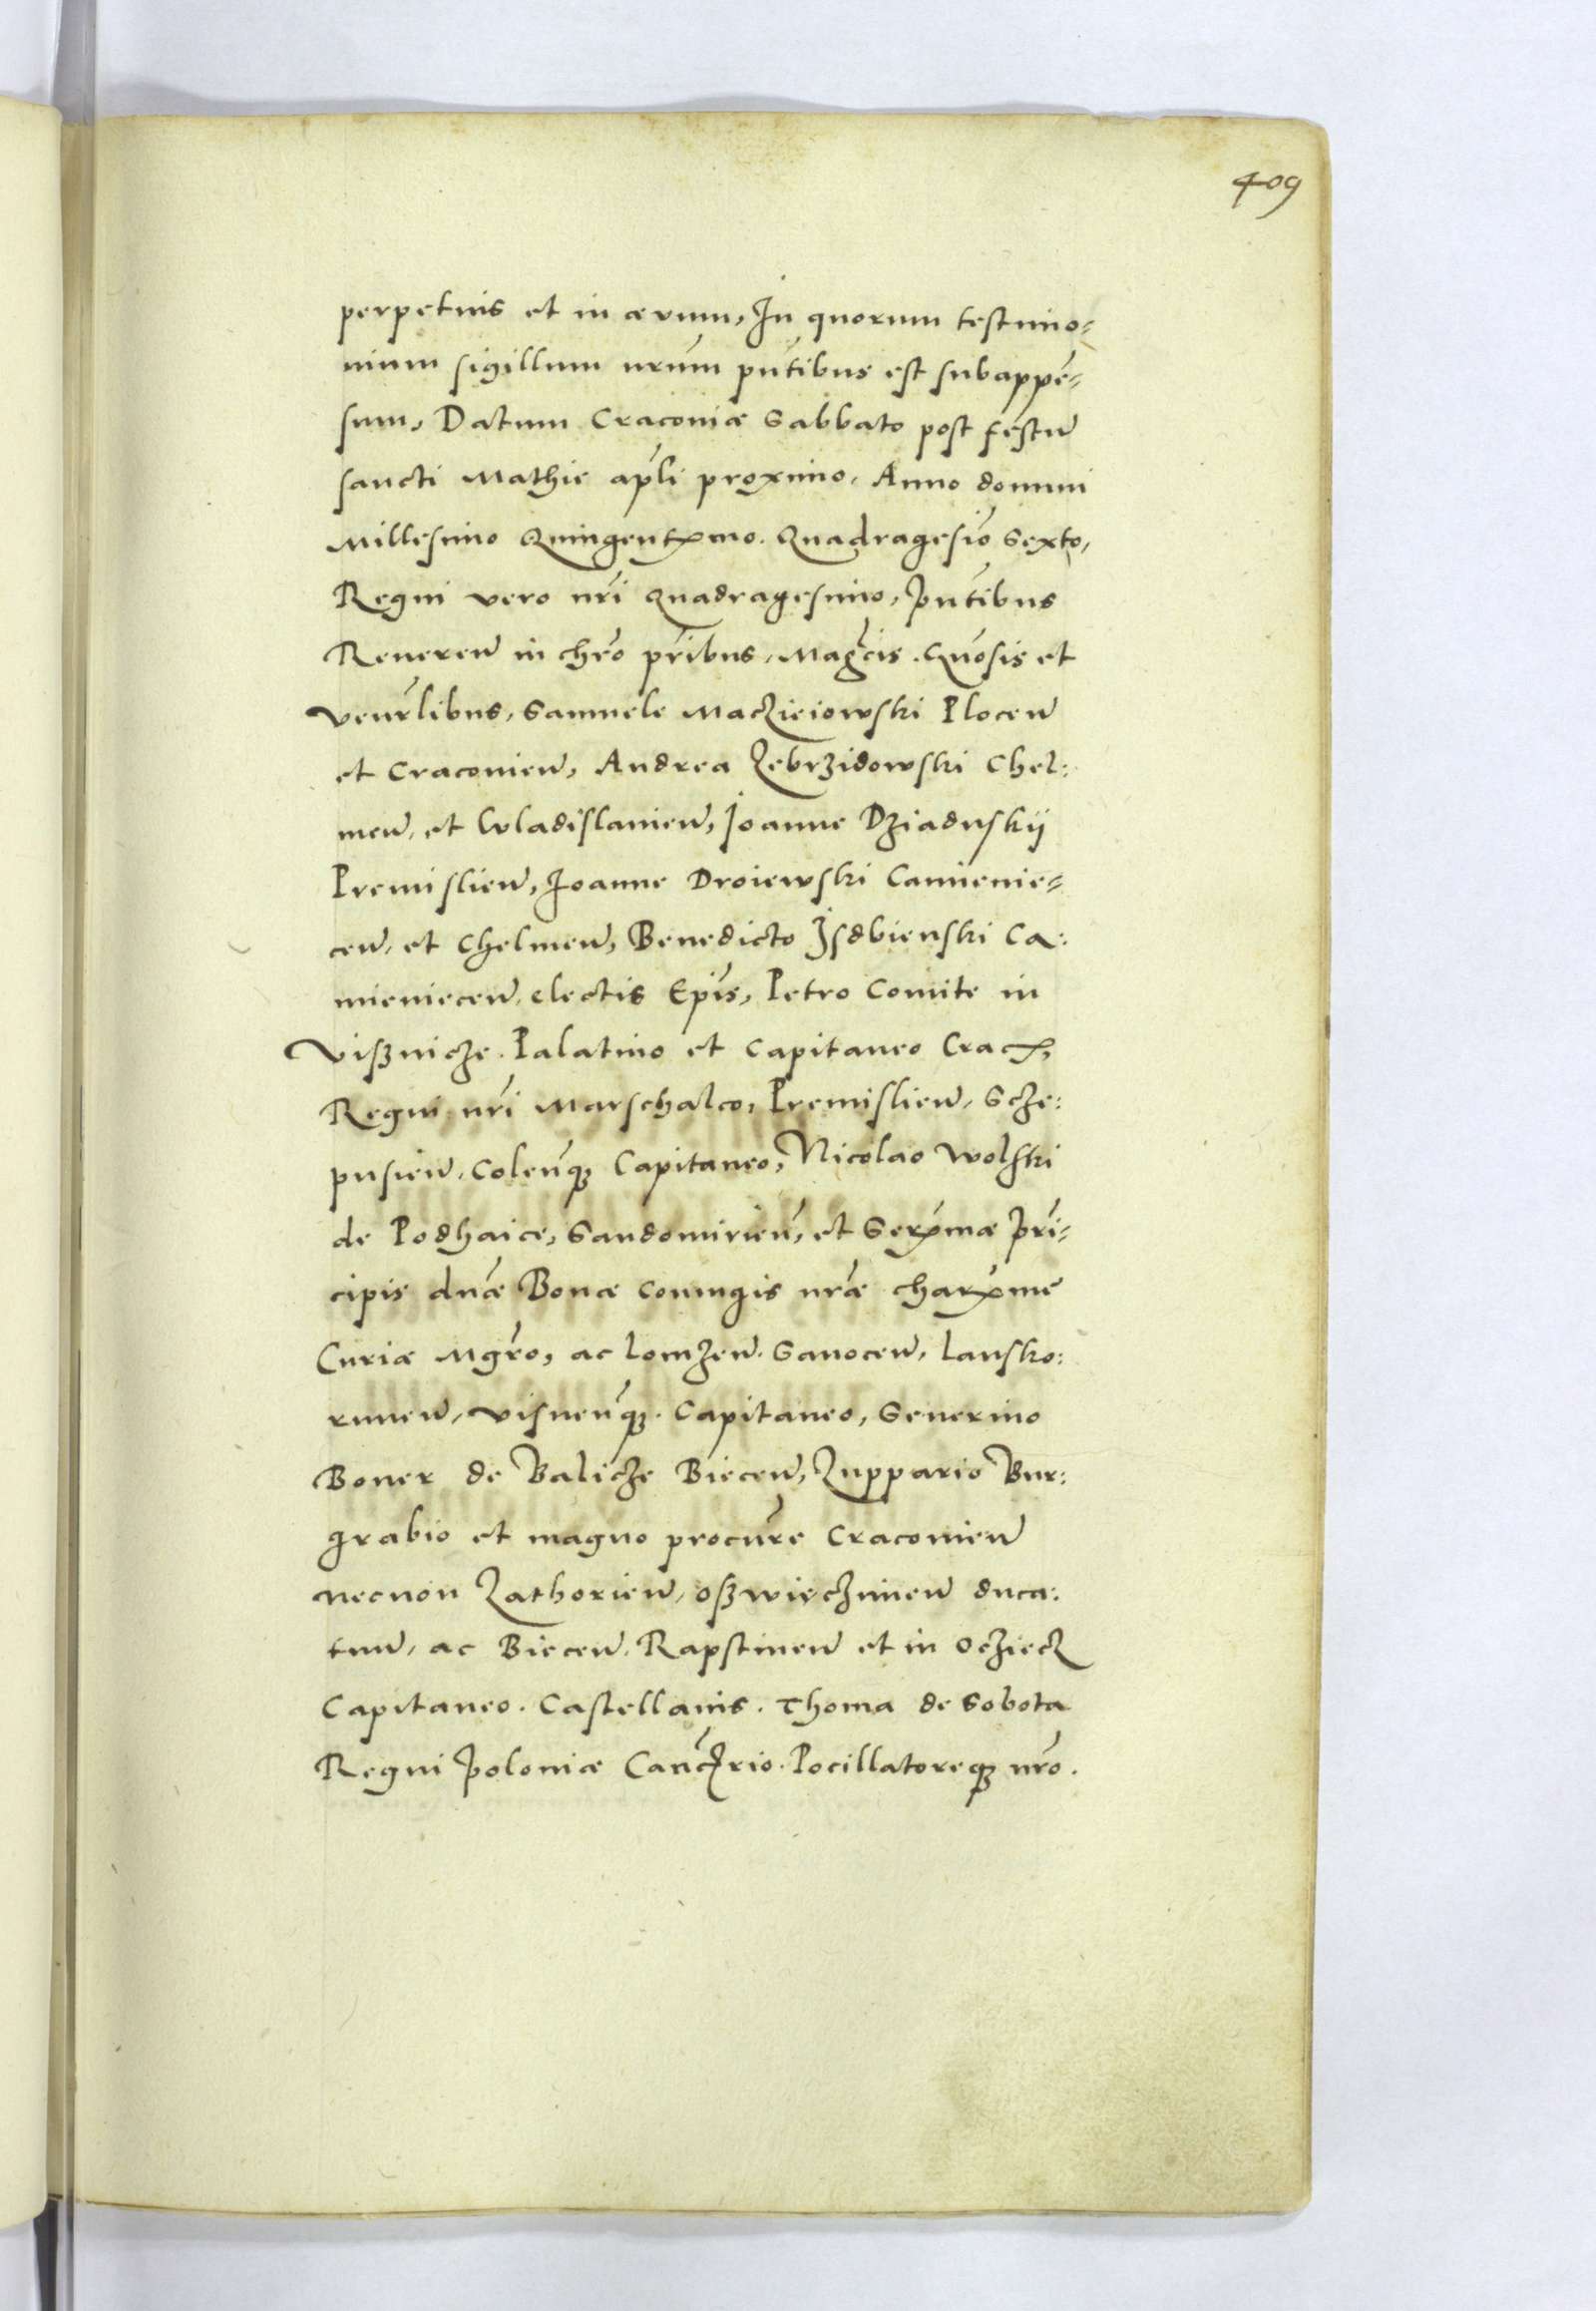 409
perpetuis et in ævum, In quorum testimo-
nium sigillum nrum pntibus est subappe-
sum, Datum Cracoviæ Sabbato post festu
sancti Mathie apli proximo, Anno domini
Millesimo Quingentmo. Quadragesio Sexto,
Regni vero nri Quadragesimo, Pntibus
Reveren in chro pribus, Magcis. Gnosis et
Venrlibus, Samuele Maczieiowski Plocen
et Cracovien, Andrea Zebrzidowski Chel:
men, et Wladislavien, Joanne Dziaduskij
Premislien, Joanne Droiewski Camenie-
cen, et Chelmen, Benedicto Isdbienski Ca:
mieniecen, electis Epis, Petro Comite in
Visznicze. Palatino et Capitaneo Crac,
Regni nri Marschalco, Premislien, Scze:
pusien, Colenq Capitaneo, Nicolao Wolski
de Podhaice, Sandomirien, et Sermæ Pri-
cipis dnæ Bonæ Coniugis nræ charme
Curiæ Mgro, ac Lomzen. Sanocen, Lansko:
runen, Visnenq. Capitaneo, Severino
Boner de Balicze Biecen, Zuppario Bur:
grabio et magno procure Cracovien
necnon Zathorien, Oszwieczimen duca:
tuu, ac Biecen. Rapstinen et in Ocziecz
Capitaneo. Castellanis. Thoma de Sobota
Regni Poloniæ Canclrio. Pocillatoreq nro.